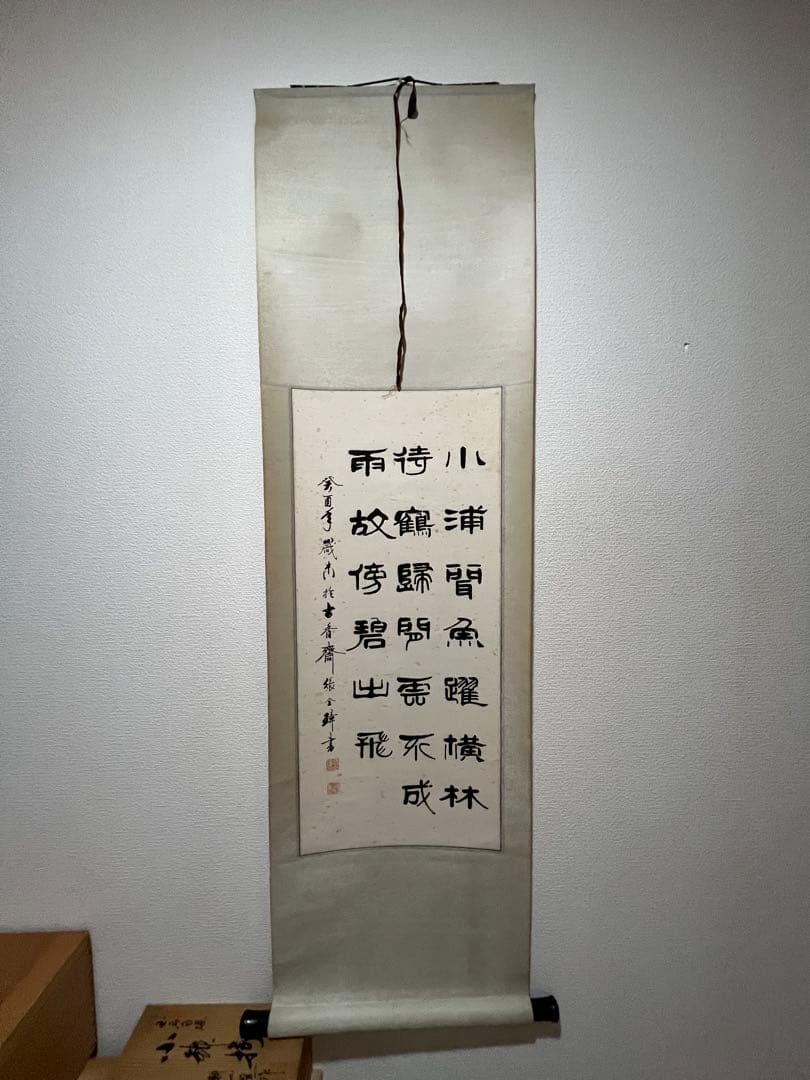 小浦聞魚躍橫林
待鶴歸閒雲不成
雨故傍碧山飛
癸酉年歲末於古香齋張金
書
小